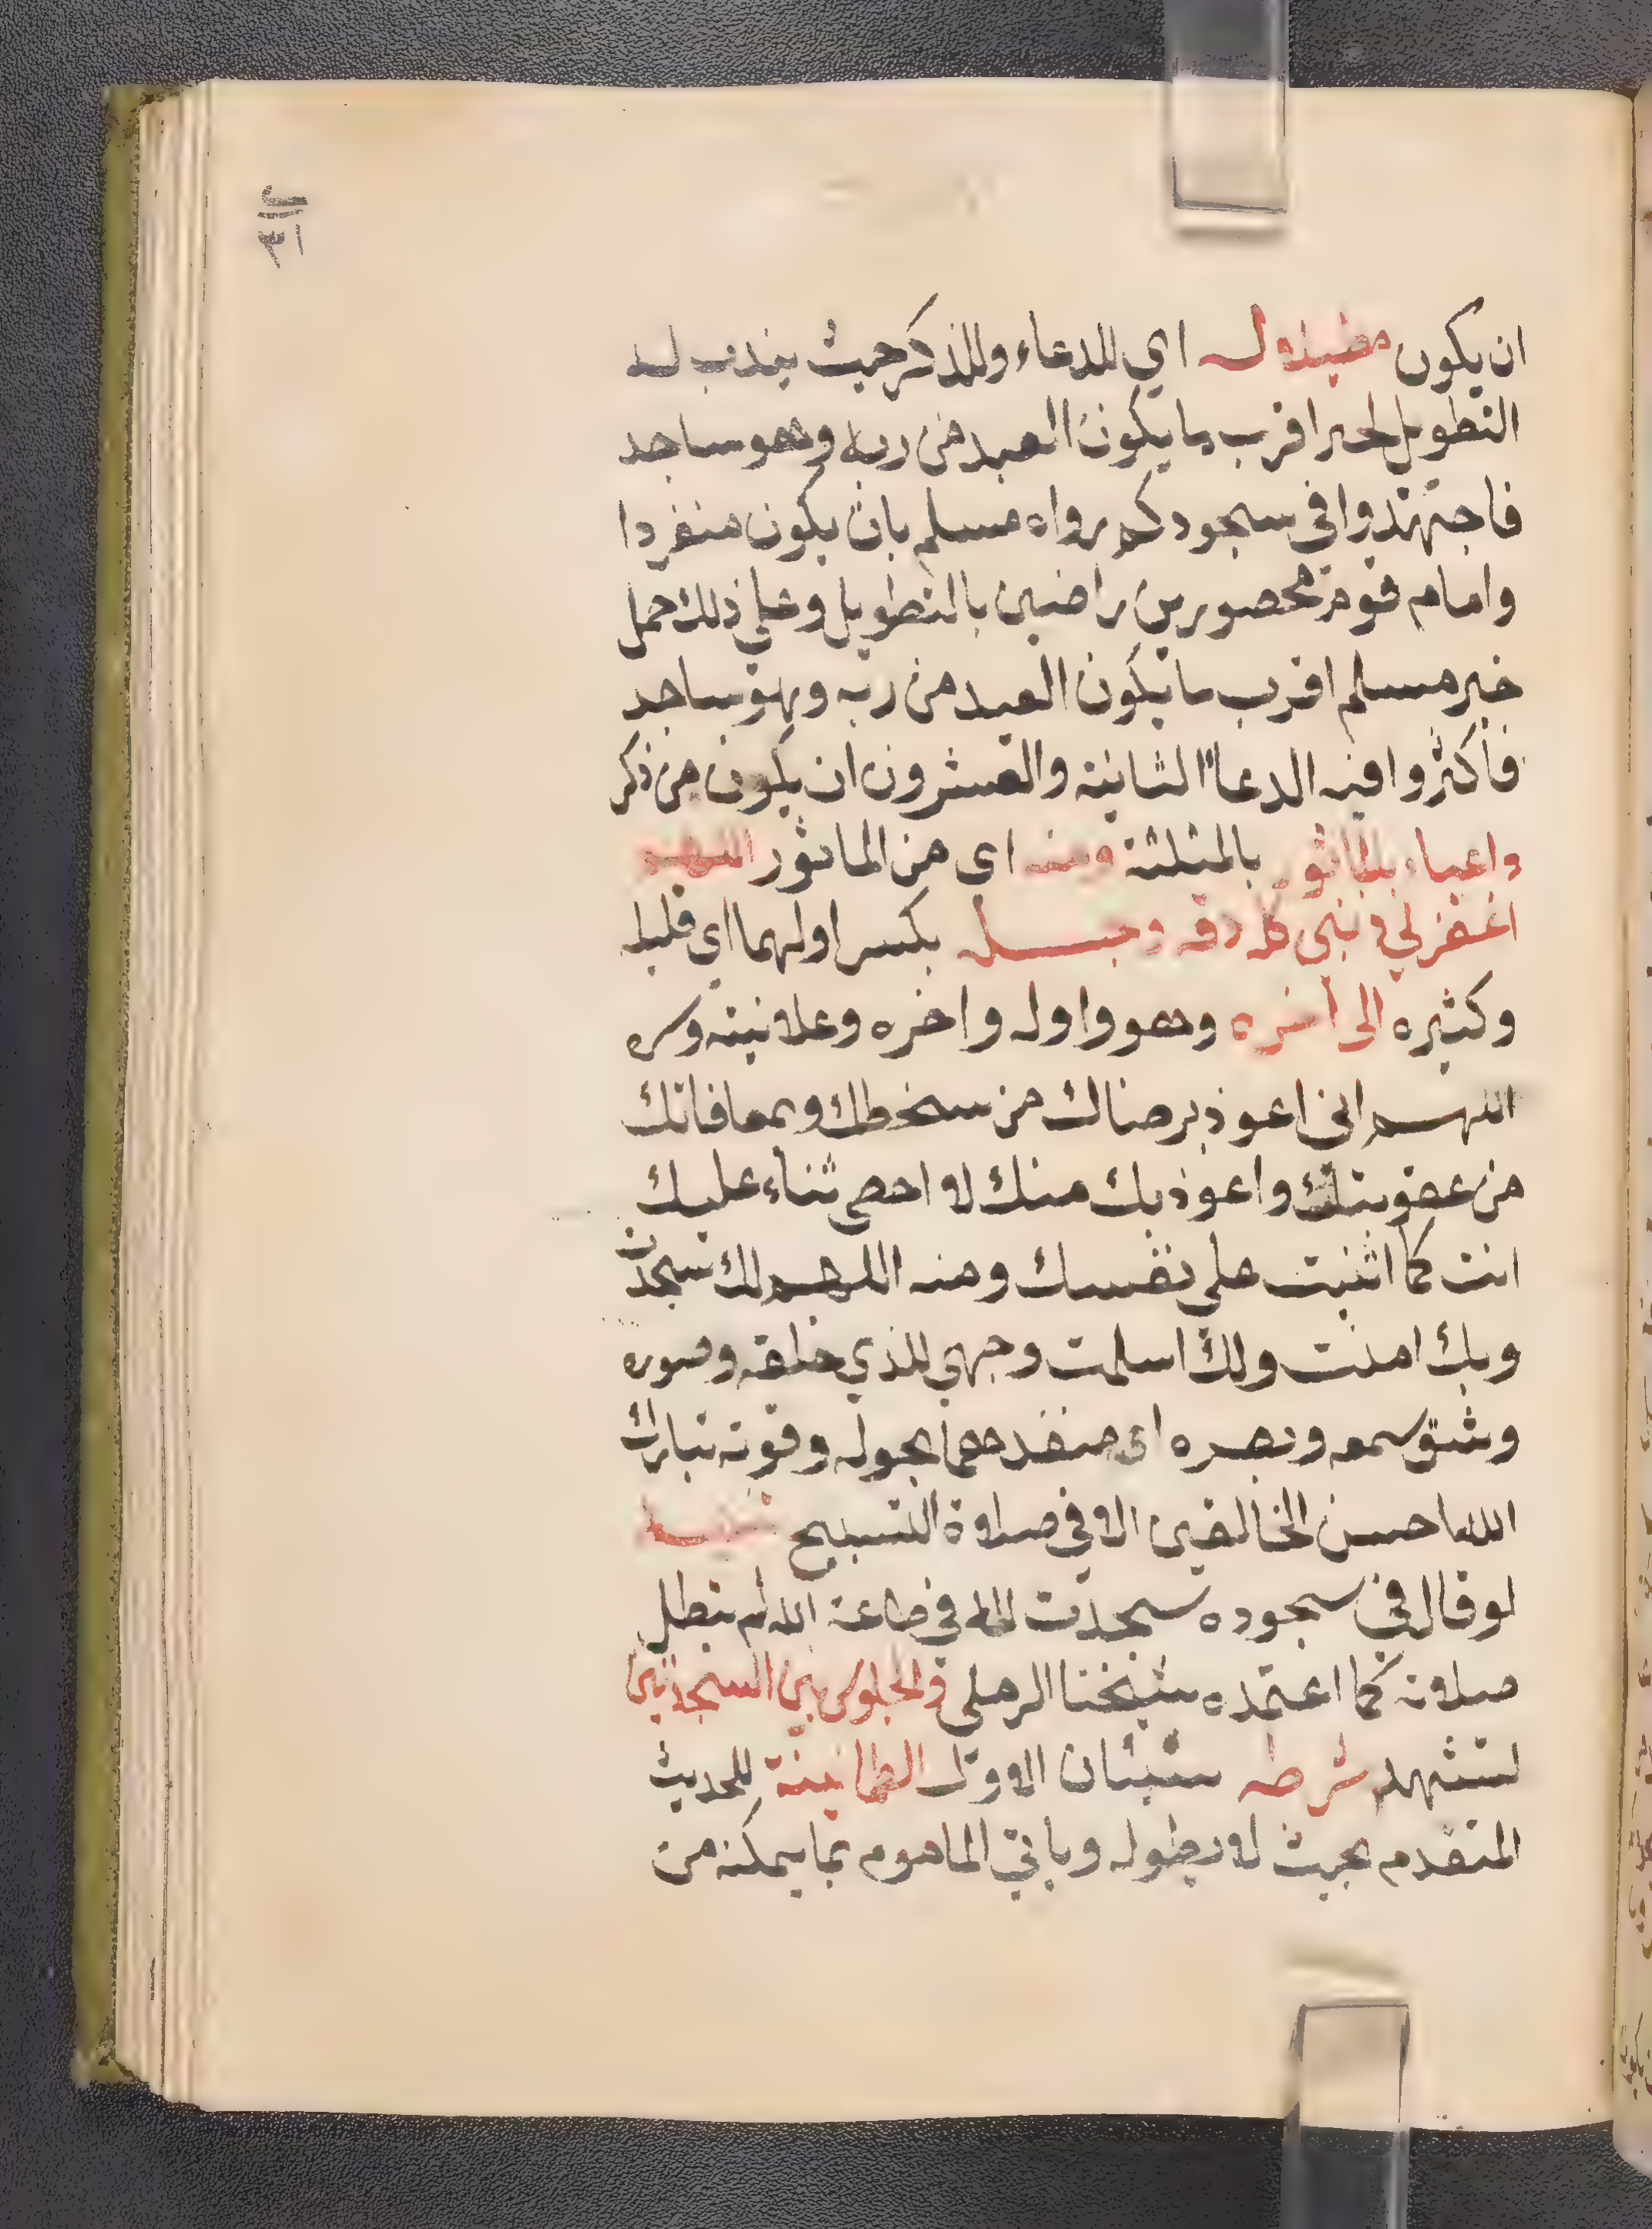 ٣١
ان يكون مطيلا له اي للدعاء وللذكر حيث يندب له
التطويل لخبر اقرب ما يكون العبد من ربه وهو ساجد
فاجتهدوا في سجودكم رواه مسلم بان يكون منفردا
وامام قوم محصورين راضين بالتطويل وعلي ذلك حمل
خبر مسلم اقرب ما يكون العبد من ربه وهو ساجد
فاكثروا فيه الدعاء الثانية والعشرون ان يكون من ذكر
داعيا بالماثور بالمثلثة ومنه اي من الماثور اللهم
اغفر لي ذنبي كله دقه وجله بكسر اولهما اي قليله
وكثيره الى اخره وهو واوله واخره وعلانيته وسره
اللهم اني اعوذ برضاك من سخطك وبمعافاتك
من عقوبتك واعوذ بك منك لا احصي ثناء عليك
انت كما اثنيت علي نفسك ومنه اللهم لك سجدت
وبك امنت ولك اسلمت وجهي للذي خلقه وصوره
وشق سمعه وبصره اي منفذهما بحوله وقوته تبارك
الله احسن الخالقين الا في صلاة التسبيح
لو قال في سجوده سجدت لله في طاعة الله لم تبطل
صلاته كما اعتمده شيخنا الرملي والجلوس بين السجدتين
لتشهد شرطه شيئان الاول الطمانينة للحديث
المتقدم بحيث لا يطوله وياتي الماموم بما يمكنه من